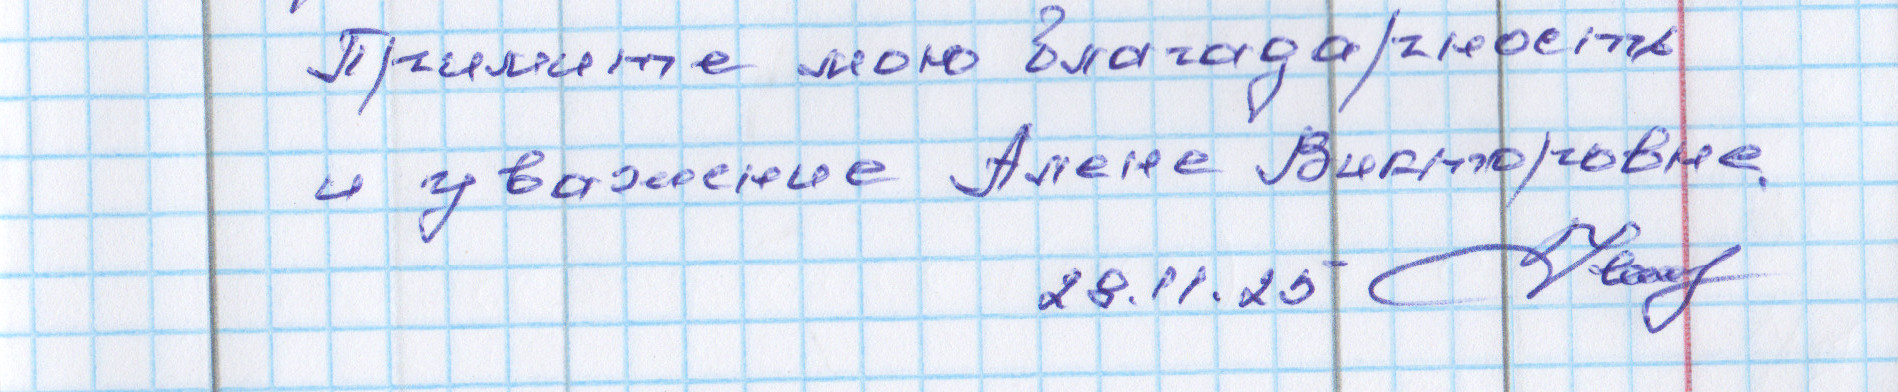 Примите мою благадарность
и уважение Алене Викторовне.
28.11.25